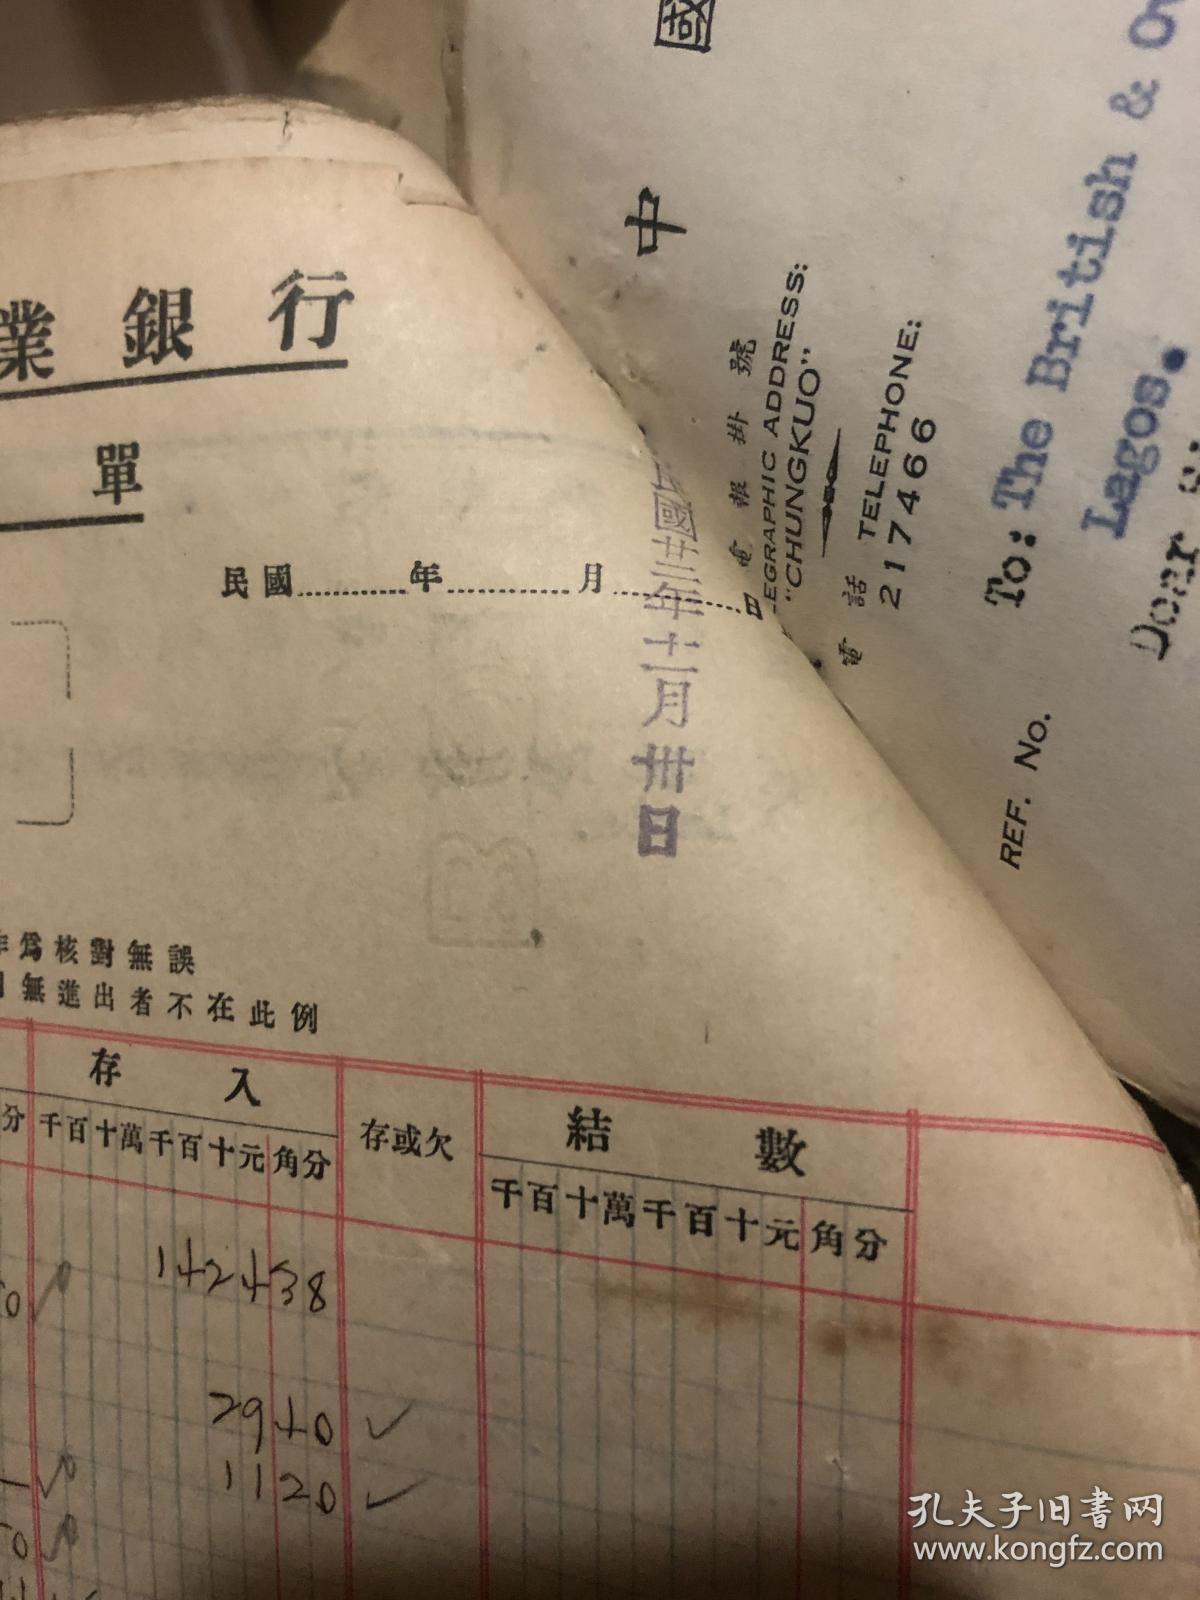 業銀行
單
民國 年 月 日
民國廿三年十二月卅日
作爲核對無誤
無進出者不在此例
分
存入
千百十萬千百十元角分
存或欠
結數
千百十萬千百十元角分
142438
50
2940
1120
50
中國
電報掛號
TELEGRAPHIC ADDRESS:
"CHUNGKUO"
電話 TELEPHONE:
217466
To: The British & Ov
Lagos.
Dear
REF. No.
孔夫子旧书网
www.kongfz.com